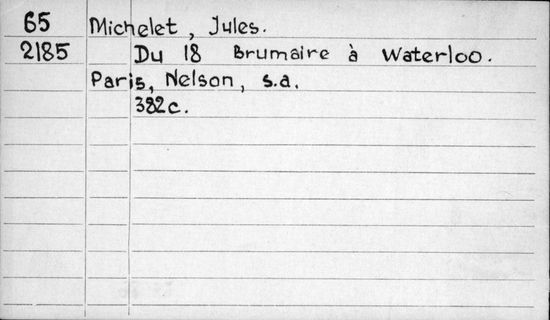 65 Michelet, Jules.
2185 Du 18 Brumaire à Waterloo.
Paris, Nelson, s.a.
382c.